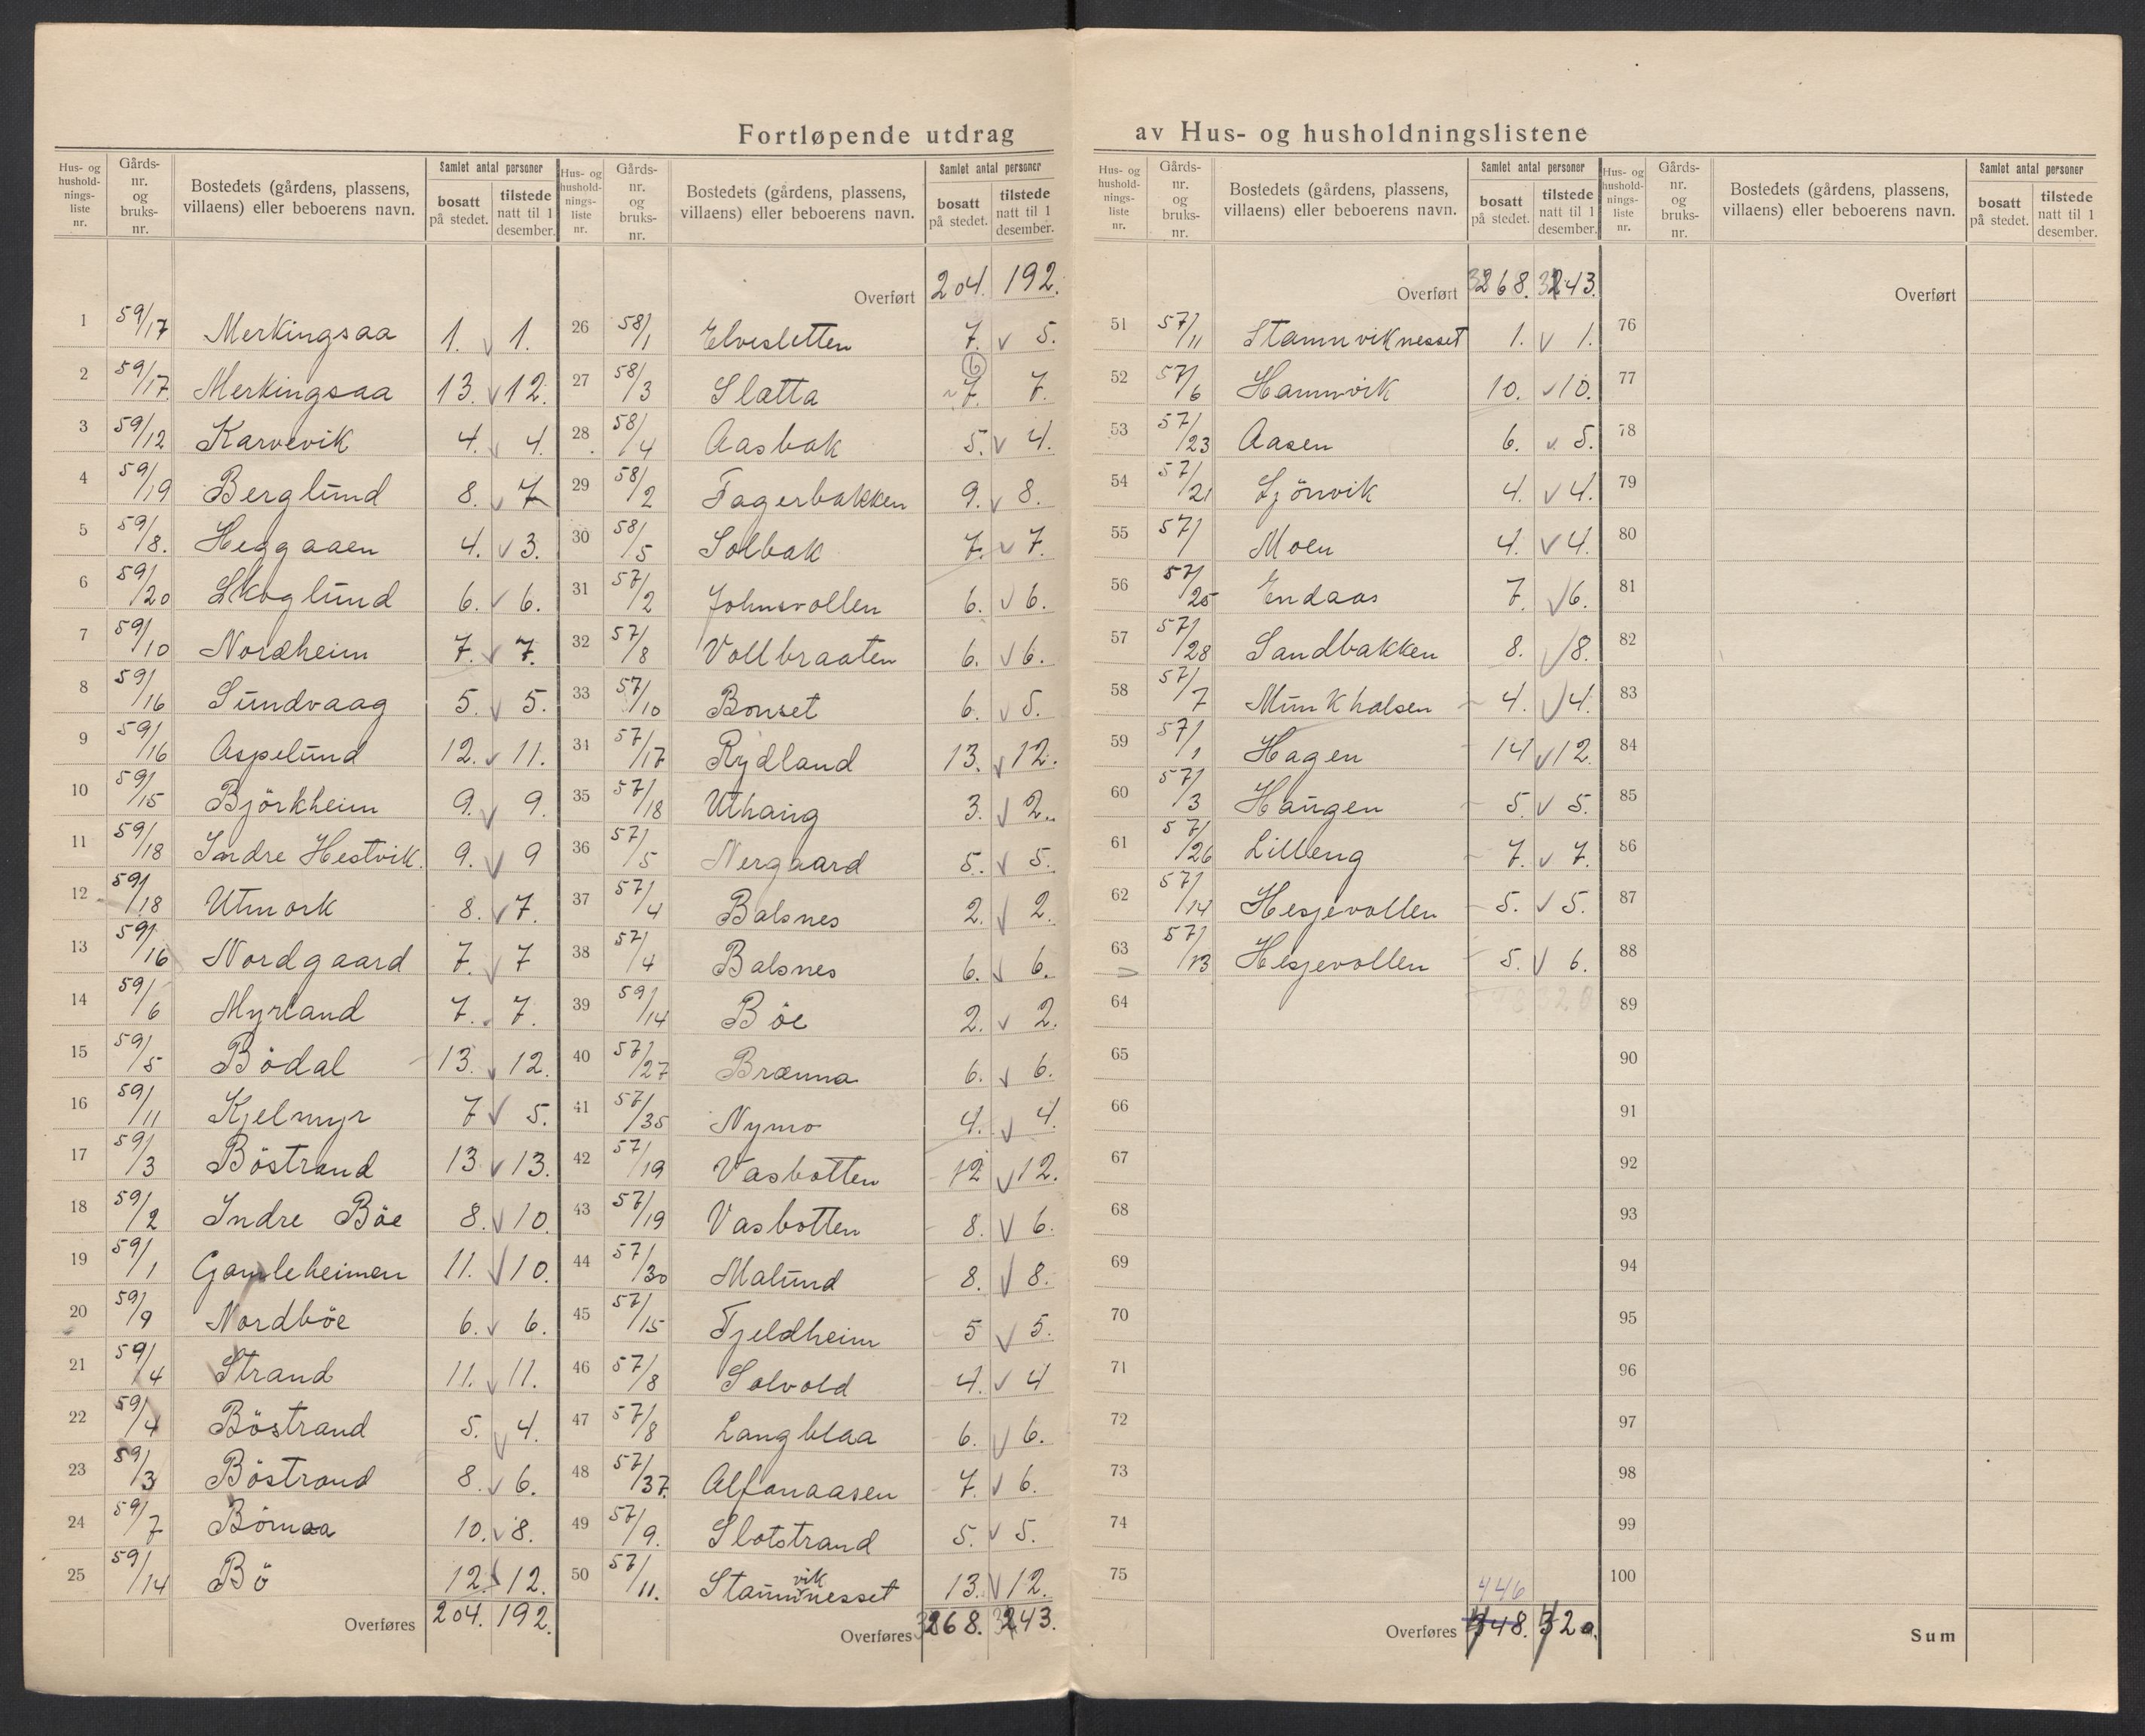 Fortløpende utdrag av Hus- og husholdningslistene
Hus- og hushold-nings-liste nr. | Gårds-nr. og bruks-nr. | Bostedets (gårdens, plassens, villaens) eller beboerens navn. | Samlet antal personer | bosatt på stedet. | tilstede natt til 1 desember.
1 59/17 Merkingsaa 1. v 1.
2 59/17 Merkingsaa 13. v 12.
3 59/12 Karvevik 4. v 4.
4 59/19 Berglund 8. v 7
5 59/8. Heggaaen 4. v 3.
6 59/20 Skoglund 6. v 6.
7 59/10 Nordheim 7. v 7.
8 59/16 Sundvaag 5. v 5.
9 59/16 Aspelund 12. v 11.
10 59/15 Björkheim 9. v 9.
11 59/18 Indre Hestvik. 9. v 9
12 59/18 Utmork 8. v 7.
13 59/16 Nordgaard 7. v 7
14 59/6 Myrland 7. v 7.
15 59/5 Bödal 13. v 12.
16 59/11 Kjelmyr 7 v 5.
17 59/3 Böstrand 13 v 13.
18 59/2 Indre Böe 8. v 10.
19 59/1 Gamleheimen 11. v 10.
20 59/9 Nordböe 6. v 6.
21 59/4 Strand 11. v 11.
22 59/4 Böstrand 5. v 4.
23 59/3 Böstrand 8. v 6.
24 59/7 Bömoa 10. v 8.
25 59/14 Bö 12. v 12.
Overføres 204. 192.
Hus- og hushold-nings-liste nr. | Gårds-nr. og bruks-nr. | Bostedets (gårdens, plassens, villaens) eller beboerens navn. | Samlet antal personer | bosatt på stedet. | tilstede natt til 1 desember.
Overført 204. 192.
26 58/1 Elvesletten 7. v 5.
27 58/3 Slatta (6) 7. 7.
28 58/4 Aasbak 5. v 4.
29 58/2 Fagerbakken 9. v 8.
30 58/5 Solbak 7. v 7.
31 57/2 Johnsvollen 6. v 6.
32 57/8 Vollbraaten 6. v 6.
33 57/10 Bonset 6. v 5.
34 57/17 Rydland 13. v 12.
35 57/18 Uthaug 3. v 2.
36 57/5 Nergaard 5. v 5.
37 57/4 Balsnes 2. v 2.
38 57/4 Balsnes 6. v 6.
39 59/14 Böe 2. v 2.
40 57/27 Brænna 6. v 6.
41 57/35 Nymo 4. v 4.
42 57/19 Vasbotten 12 v 12.
43 57/19 Vasbotten 8. v 6.
44 57/30 Malund 8. v 8.
45 57/15 Fjeldheim 5 v 5.
46 57/8 Solvold 4. v 4
47 57/8 Langblaa 6. v 6.
48 57/37. Alfonaasen 7. v 6.
49 57/9. Slotstrand 5. v 5.
50 57/11. Stamviknesset 13. v 12.
Overføres 368. 343.
Hus- og hushold-nings-liste nr. | Gårds-nr. og bruks-nr. | Bostedets (gårdens, plassens, villaens) eller beboerens navn. | Samlet antal personer | bosatt på stedet. | tilstede natt til 1 desember.
Overført 368. 343.
51 57/11 Stamnviknesset 1. v 1.
52 57/6 Hamnvik 10. v 10.
53 57/23 Aasen 6. v 5.
54 57/21 Sjönvik 4. v 4.
55 57/ Moen 4. v 4.
56 57/25 Endaas 7. v 6.
57 57/28 Sandbakken 8. v 8.
58 57/7 Munkhalsen 4. v 4.
59 57/1 Hagen 14 v 12.
60 57/3 Haugen 5. v 5.
61 57/26 Lilleng 7. v 7.
62 57/14 Hesjevollen 5. v 5.
63 57/13 Hesjevollen 5. v 6.
64
65
66
67
68
69
70
71
72
73
74
75
446
Overføres 448. 420.
Hus- og hushold-nings-liste nr. | Gårds-nr. og bruks-nr. | Bostedets (gårdens, plassens, villaens) eller beboerens navn. | Samlet antal personer | bosatt på stedet. | tilstede natt til 1 desember.
Overført
76
77
78
79
80
81
82
83
84
85
86
87
88
89
90
91
92
93
94
95
96
97
98
99
100
Sum